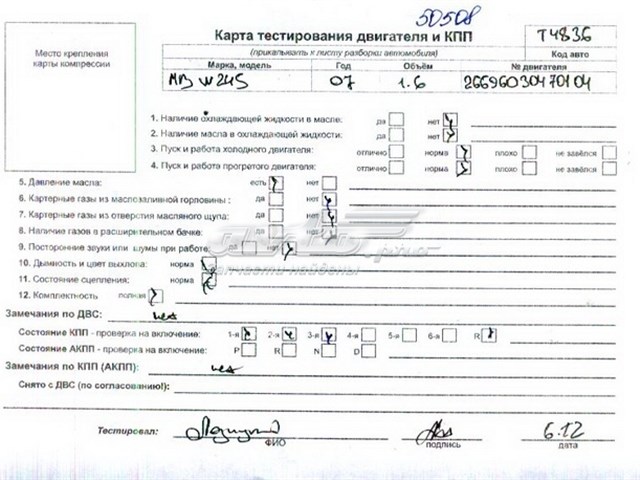 50508
Карта тестирования двигателя и КПП
T4836
(прикалывать к листу разборки автомобиля)
Код авто
Место крепления
карты компрессии
Марка, модель Год Объём № двигателя
MB W245 07 1.6 26696030470104
1. Наличие охлаждающей жидкости в масле: да нет
2. Наличие масла в охлаждающей жидкости: да нет
3. Пуск и работа холодного двигателя: отлично норма плохо не завёлся
4. Пуск и работа прогретого двигателя: отлично норма плохо не завёлся
5. Давление масла: есть нет
6. Картерные газы из маслозаливной горловины: да нет
7. Картерные газы из отверстия масляного щупа: да нет
8. Наличие газов в расширительном бачке: да нет
9. Посторонние звуки или шумы при работе: да нет
10. Дымность и цвет выхлопа: норма
11. Состояние сцепления: норма
запчасти найдены
12. Комплектность полная
Замечания по ДВС: нет
Состояние КПП - проверка на включение: 1-я 2-я 3-я 4-я 5-я 6-я R
Состояние АКПП - проверка на включение: P R N D
Замечания по КПП (АКПП): нет
Снято с ДВС (по согласованию!):
Тестировал: 6.12
ФИО подпись дата